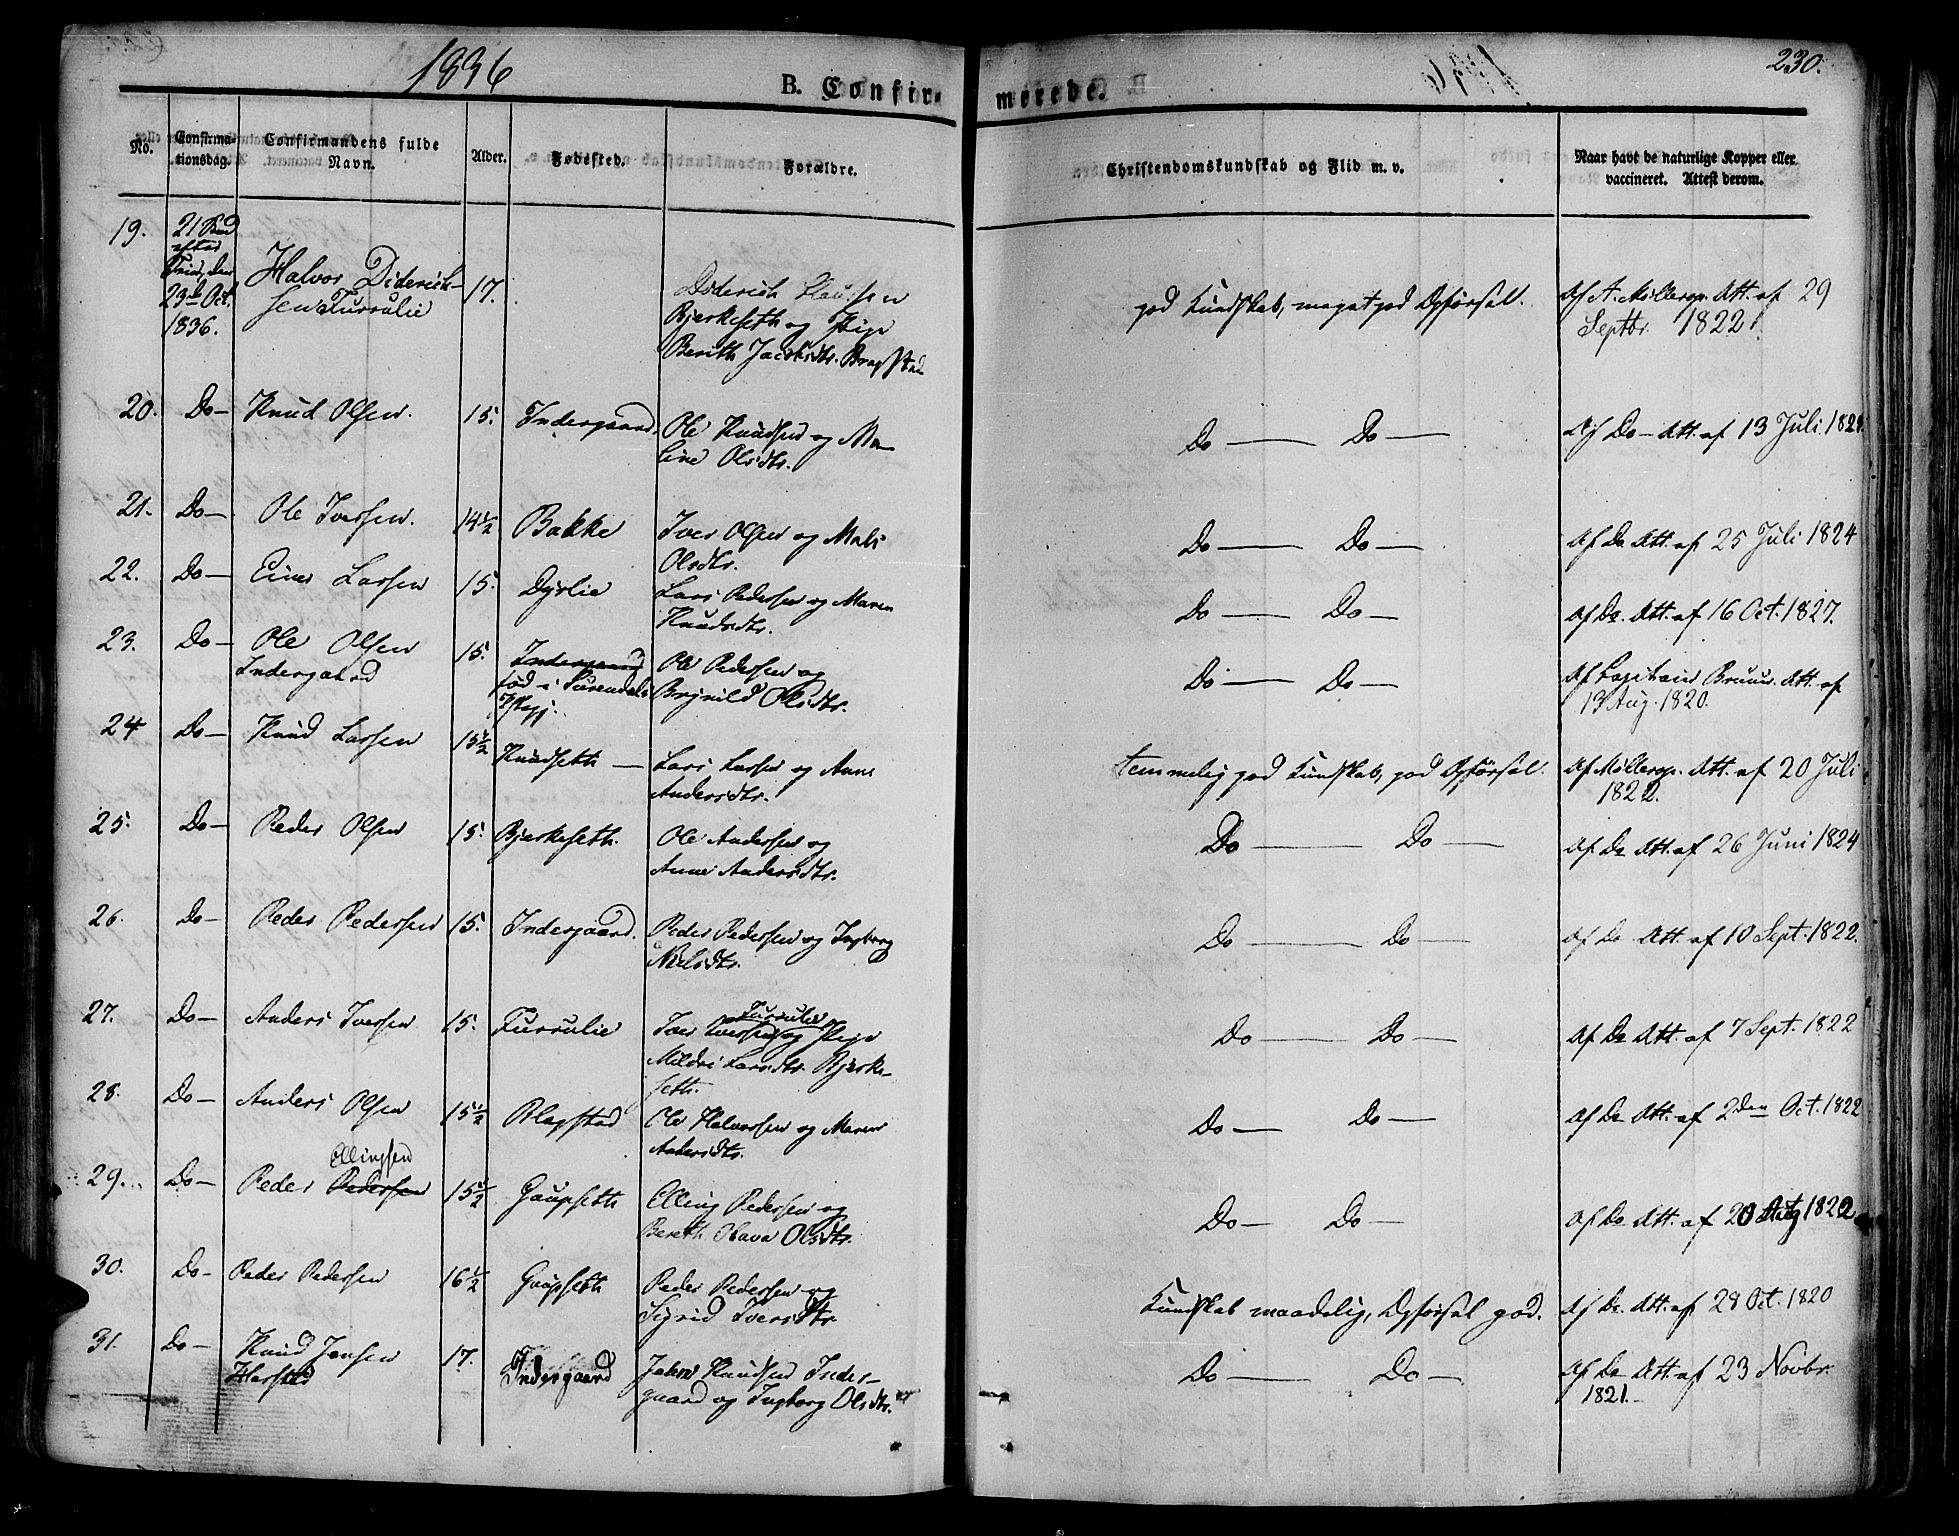 1836
230.
B. Confirmerede.
No.
Confirmationsdag.
Confirmandens fulde Navn.
Alder.
Fødested.
Forældre.
Christendomskundskab og Flid m. v.
Naar havt de naturlige Kopper eller vaccineret. Attest derom.
19.
21 Sønd
efter
Trin, den
23de Oct.
1836.
Halvor Diderich-
sen Furrulie
17.
Diderich Clausen
Bjerkeseth og Pige
Berith Jacobsdtr. Bragstad
god Kundskab, meget god Opførsel.
Af A. Møllerop. Att. af 29
Septbr. 1822.
20. Do— Knud Olsen. 15. Indergaard. Ole Knudsen og Ma-
line Olsdtr.
Do — Do —
Af Do— Att. af 13 Juli 182
21. Do— Ole Iversen. 14½ Bakke Iver Olsen og Mali
Olsdtr.
Do — Do —
Af Do Att. af 25 Juli 1824
22. Do— Einer Larsen 15. Dyrlie Lars Pedersen og Maren
Knudsdtr.
Do — Do —
Af Do. Att. af 16 Oct. 1827.
23. Do— Ole Olsen
Indergaard
15. Indergaard
fød i Surendals
Præstegj.
Ole Pedersen og
Brynild Olsdtr.
Do — Do —
Af Capitain Bruun. Att. af
13 Aug. 1820.
24 Do— Knud Larsen 15½ Knudseth — Lars Larsen og Anne
Andersdtr.
temmelig god Kundskab, god Opførsel.
Af Møllerop. Att. af 20 Juli
1822.
25. Do— Peder Olsen 15. Bjerkeseth. Ole Andersen og
Anne Andersdtr.
Do — Do —
Af Do Att. af 26 Juni 1824
26. Do— Peder Pedersen 15. Indergaard. Peder Pedersen og Ingborg
Nielsdtr.
Do — Do —
Af Do Att. af 10 Sept. 1822.
27. Do— Anders Iversen 15. Furrulie Iver Iversen Furrulie og Pige
Mildri Larsdtr. Bjerke-
seth.
Do — Do —
Af Do Att. af 7 Sept. 1822
28. Do— Anders Olsen 15½ Blagstad Ole Halvorsen og Maren
Andersdtr.
Do — Do —
Af Do Att. af 2den Oct. 1822
29. Do— Peder Pedersen Ellingsen 15½ Gaupseth Elling Pedersen og
Bereth Olava Olsdtr.
Do — Do —
Af Do Att. af 20 Aug 1822
30. Do— Peder Pedersen 16½ Gaupseth Peder Pedersen og
Sigrid Iversdtr.
Kundskab maadelig, Opførsel god.
Af Do. Att. af 28 Oct. 1820
31. Do— Knud Jonsen
Harstad
17. Indergaard John Knudsen Inder-
gaard og Ingborg Olsdtr.
Do — Do —
Af Do Att. af 23 Novbr.
1821.